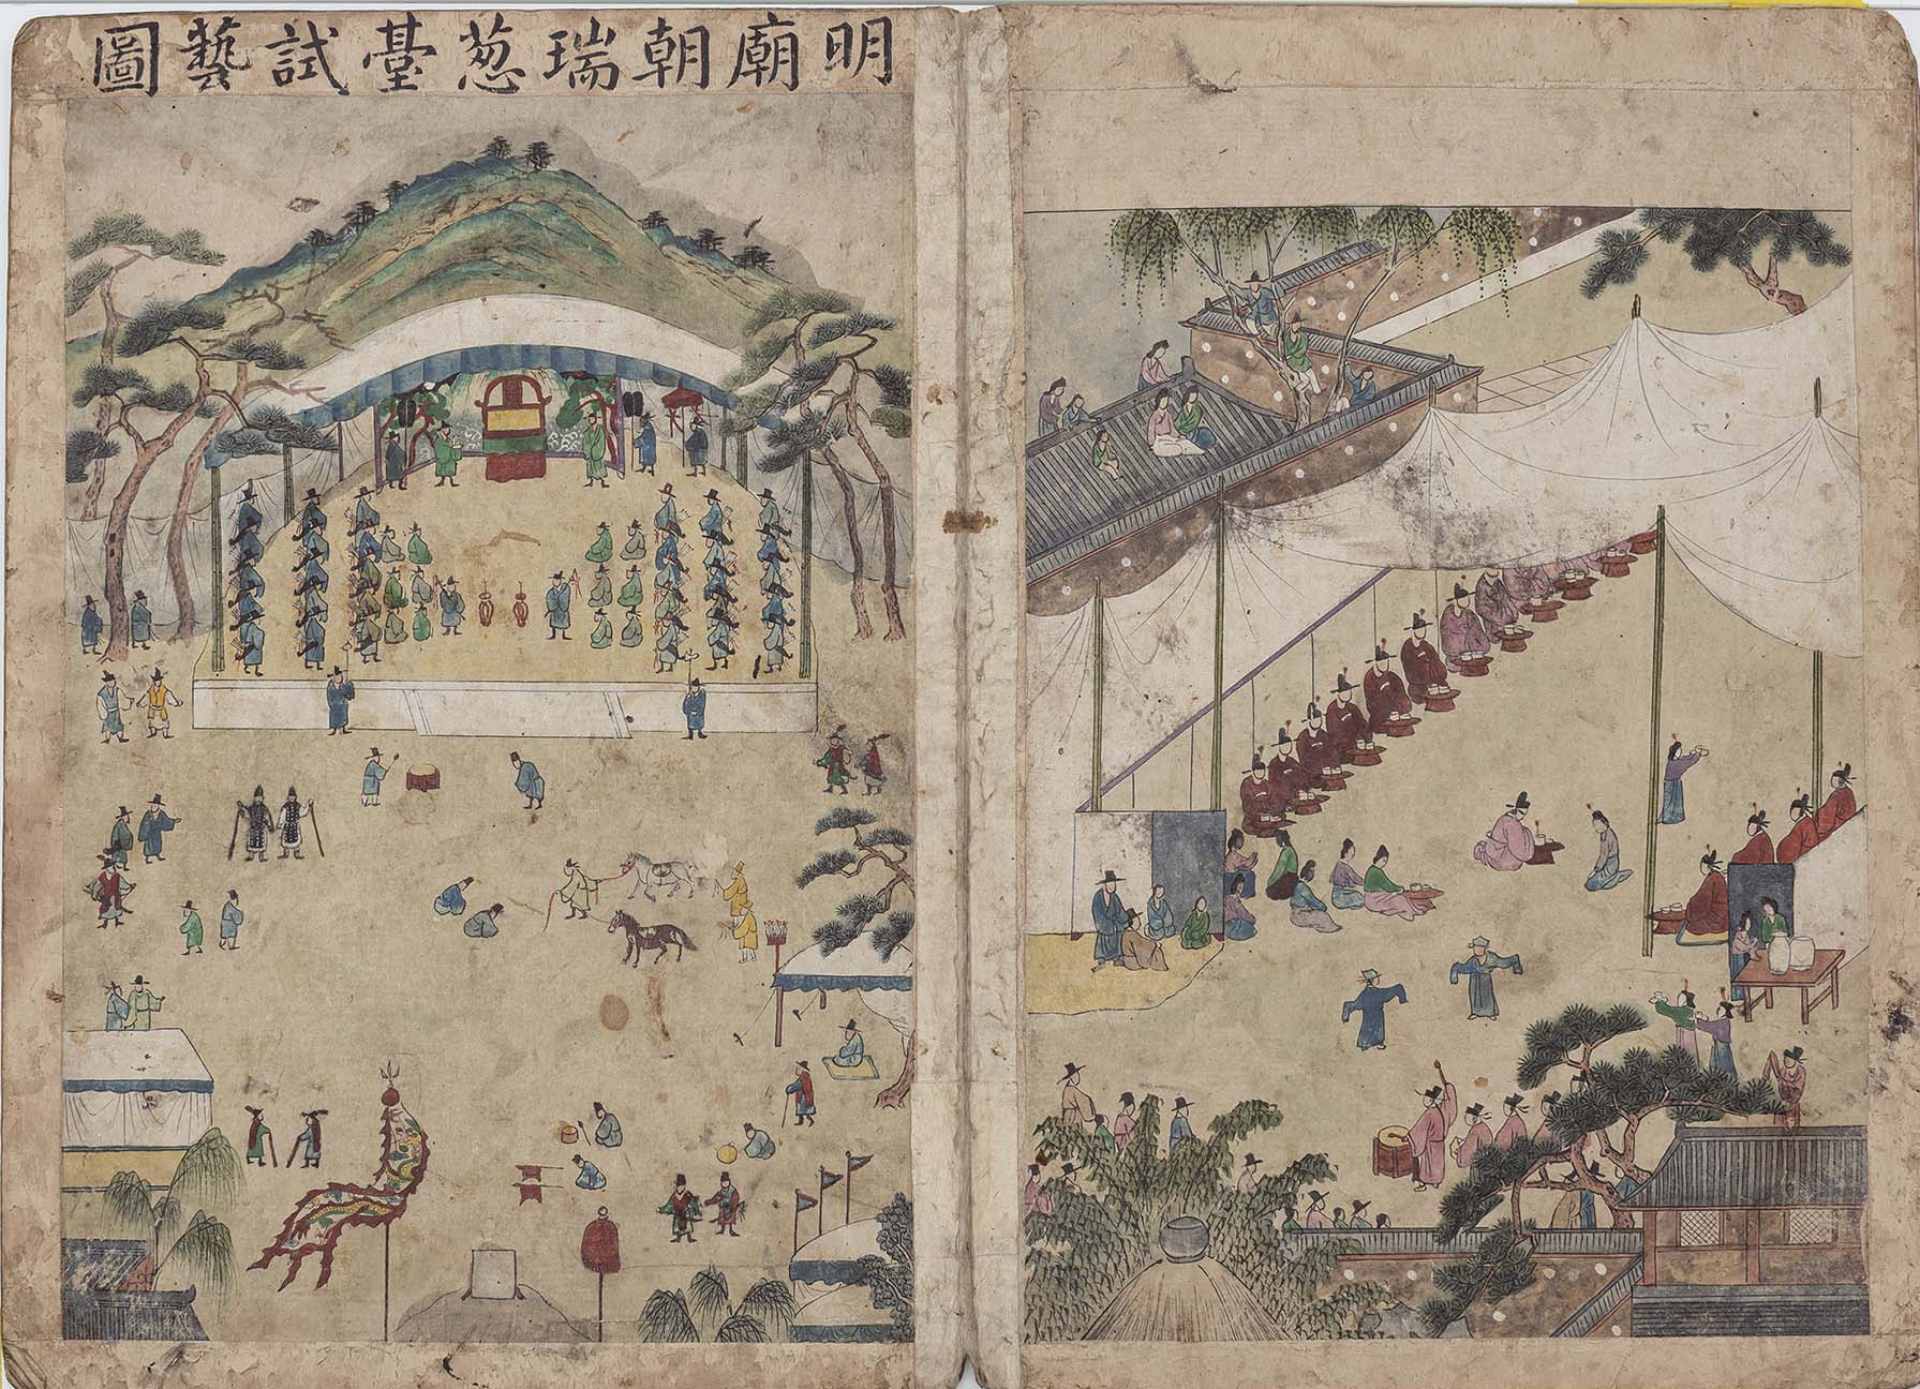 明廟朝瑞葱臺試藝圖